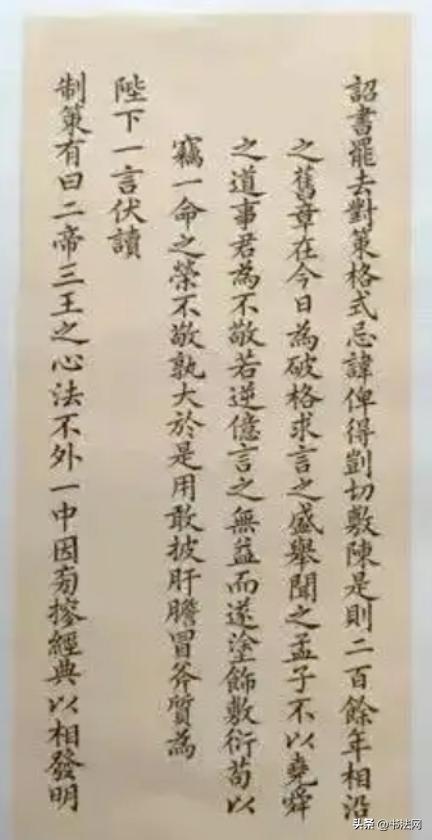 詔書罷去對策格式忌諱俾得剴切敷陳是則二百餘年相沿
之舊章在今日為破格求言之盛舉聞之孟子不以堯舜
之道事君為不敬若逆億言之無益而遂塗飾敷衍苟以
竊一命之榮不敬孰大於是用敢披肝膽冒斧質為
陛下一言伏讀
制策有曰二帝三王之心法不外一中因而搴經典以相發明
头条 @书法网